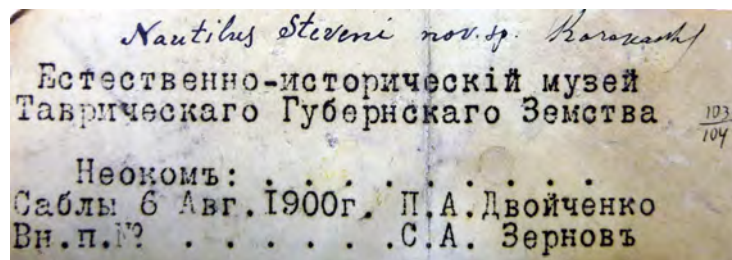 Nautilus Steveni nov. sp. Karakasch
Естественно-историческій музей
Таврическаго Губернскаго Земства
103/104
Неокомъ: . . . . . . . . . .
Саблы 6 Авг. 1900г. П.А.Двойченко
Вн.п.№ . . . . . .С.А. Зерновъ